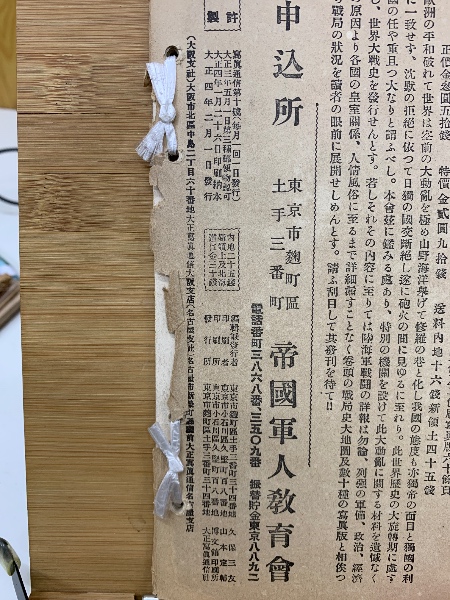 正價金參圓五拾錢　特價金貳圓九拾錢　送料內地十六錢新領土四十五錢
歐洲の平和破れて世界は空前の大動亂を極め山野海洋擧げて修羅の巷と化し我國の態度も亦獨帝の面目と獨國の利
に一致せず、沈默の拒絶に依つて日獨の國交斷絕し遂に砲火の間に見ゆるに至れり。此世界歷史の大旋轉期に處す
國の任や重且つ大なりと謂ふべし。本會玆に鑑みる處あり、特別の機關を設けて此大動亂に關する材料を遺憾なく
し、世界大戰史を發行せんとす。若しそれその內容に至りては陸海軍戰鬪の詳報は勿論、列强の軍備、政治、經濟
の原因より各國の皇室關係、人情風俗に至るまで詳細漏すことなく卷頭の戰局史大地圖及數十種の寫眞版と相俟つ
も戰局の狀況を讀者の眼前に展開せしめんとす。請ふ刮目して其發刊を待て!!
申込所
東京市麴町區
土手三番町
帝國軍人敎育會
電話番町三八六八番、三五〇九番　振替貯金東京八八九二
許
製
寫眞通信第十號(每月一回一日發行)
大正三年五月一日第三種郵便物認可
大正四年一月二十六日印刷納本
大正四年二月一日發行
內地二十五錢
編輯兼發行者　東京市麴町區土手三番町三十四番地　久保三友
印刷者　東京市小石川區久堅町百八番地　山本定輔
印刷所　東京市小石川區久堅町百八番地　博文館印刷所
發行所　東京市麴町區土手三番町三十四番地　大正寫眞通信社
(大阪支社)大阪市北區中之島二丁目六十番地大正寫眞通信大阪支店(名古屋支社)名古屋市
前大正寫眞通信名古屋支店